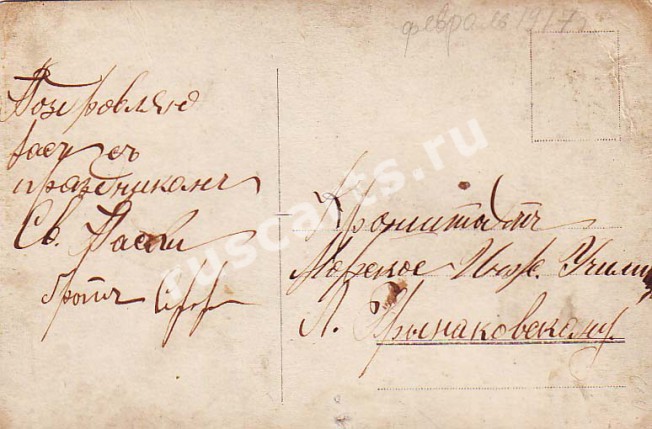 февраль 1917 г
Поздровляю
васъ съ
праздникамъ
Св. Пасхи
братъ
Кронштатъ
Морское Инж. Учили
Л. Крынаковскому
ruscards.ru